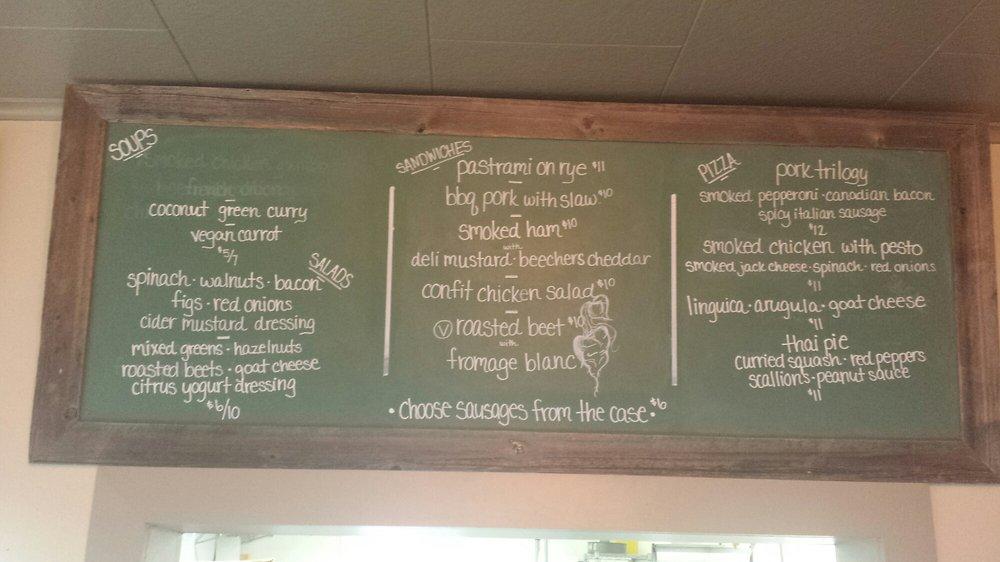 SOUPS
coconut green curry
vegan carrot
$5/7
SALADS
spinach · walnuts · bacon
figs · red onions
cider mustard dressing
mixed greens · hazelnuts
roasted beets · goat cheese
citrus yogurt dressing
$6/10
SANDWICHES
pastrami on rye $11
bbq pork with slaw $10
smoked ham $10
with
deli mustard · beechers cheddar
confit chicken salad $10
V roasted beet $10
with
fromage blanc
• choose sausages from the case • $6
PIZZA
pork trilogy
smoked pepperoni · canadian bacon
spicy italian sausage
$12
smoked chicken with pesto
smoked jack cheese · spinach · red onions
$11
linguica · arugula · goat cheese
$11
thai pie
curried squash · red peppers
scallions · peanut sauce
$11